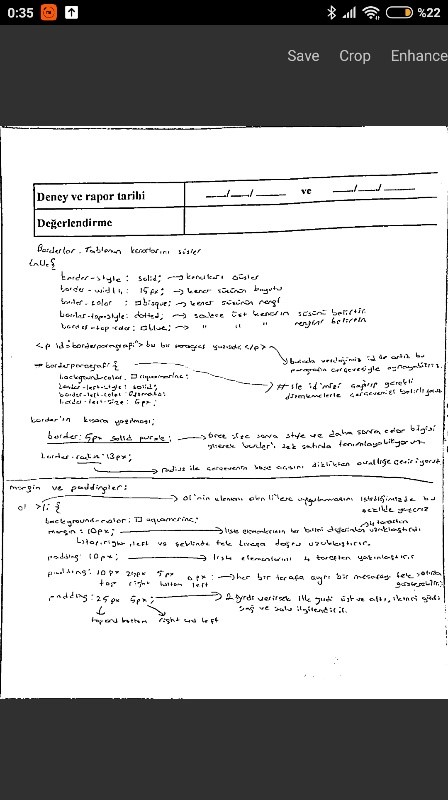 0:35
%22
Save Crop Enhance
Deney ve rapor tarihi __/__/__ ve __/__/__
Değerlendirme
Borderlar. Tablonun kenarlarını süsler
border-style: solid; → kenarları süsler
border-width: 15px; → kenar süsünün boyutu
border-color: bisque; → kenar süsünün rengi
border-top-style: dotted; → sadece üst kenarın süsünü belirtir
border-top-color: blue; → " " " rengini belirtir
<p id="borderparagrafi"> bu bir paragraf yazısıdır </p>
burada verdiğimiz id ile artık bu
paragrafın çerçevesiyle oynayabiliriz.
borderparagrafi {
background-color: aquamarine;
border-left-style: solid;
border-left-color:
border-left-size: 6px;
# ile id'mizi çağırıp gerekli
düzenlemelerle çerçevemizi belirliyoruz
border'ın kısaca yazılması;
border: 5px solid purple; → önce size sonra style ve daha sonra color bilgisi
girerek border'ı tek satırda tanımlayabiliyoruz
border-radius: 13px;
→ radius ile çerçevenin köşe açısını diklikten ovalliğe çeviriyoruz
margin ve paddingler;
ol > li { → ol'nin elemanı olan li'lere uygulamasını istediğimizde bu
şekilde yazarız
background-color: aquamarine;
margin: 10px; → liste elemanlarının her birini diğerinden uzaklaştırdı
4 taraftan
bu top, right, left vs şeklinde tek tarafa doğru uzaklaştırır.
padding: 10px; → liste elemanlarını 4 taraftan yakınlaştırır.
padding: 10px 25px 5px 0px; → her bir tarafa ayrı bir mesafeyi tek satırda
top right bottom left
padding: 25px 5px; → 2 girdi verirsek ilk girdi üst ve altı, ikinci girdi
sağ ve solu ilgilendirir.
top and bottom right and left